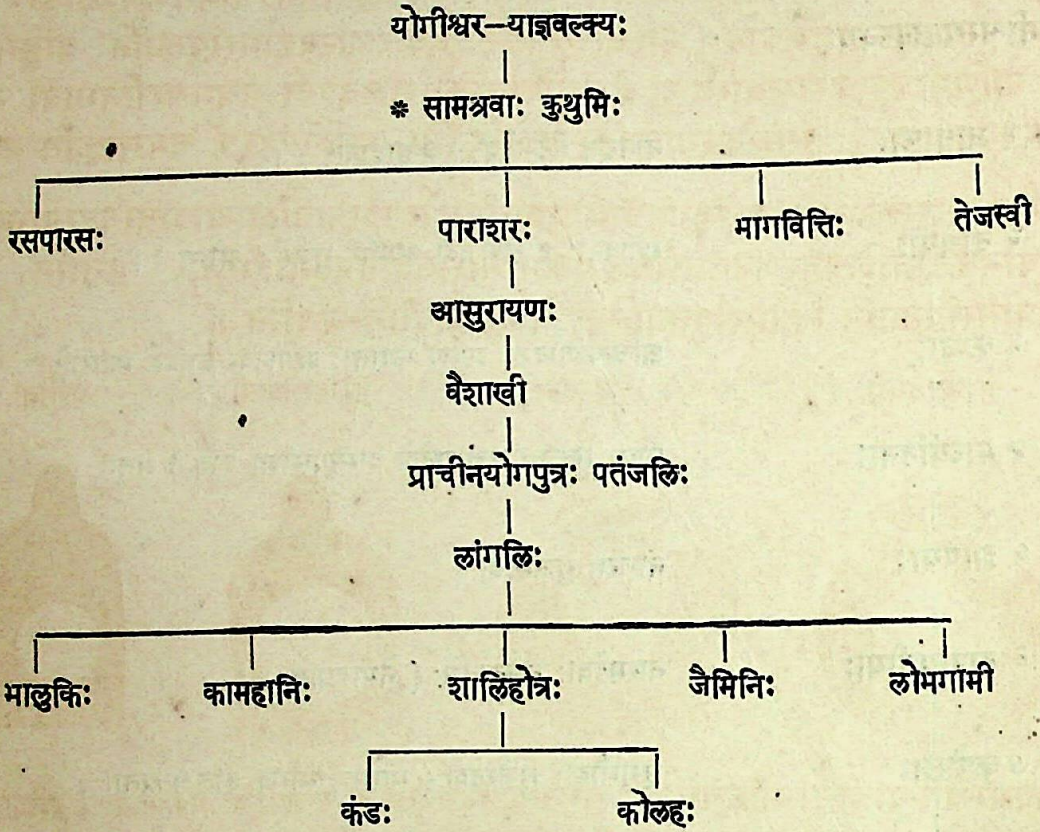 योगीश्वर–याज्ञवल्क्यः
* सामश्रवाः कुथुमिः
रसपारसः पाराशरः भागवित्तिः तेजस्वी
आसुरायणः
वैशाखी
प्राचीनयोगपुत्रः पतंजलिः
लांगलिः
भालुकिः कामहानिः शालिहोत्रः जैमिनिः लोमगामी
कंडः कोलहः